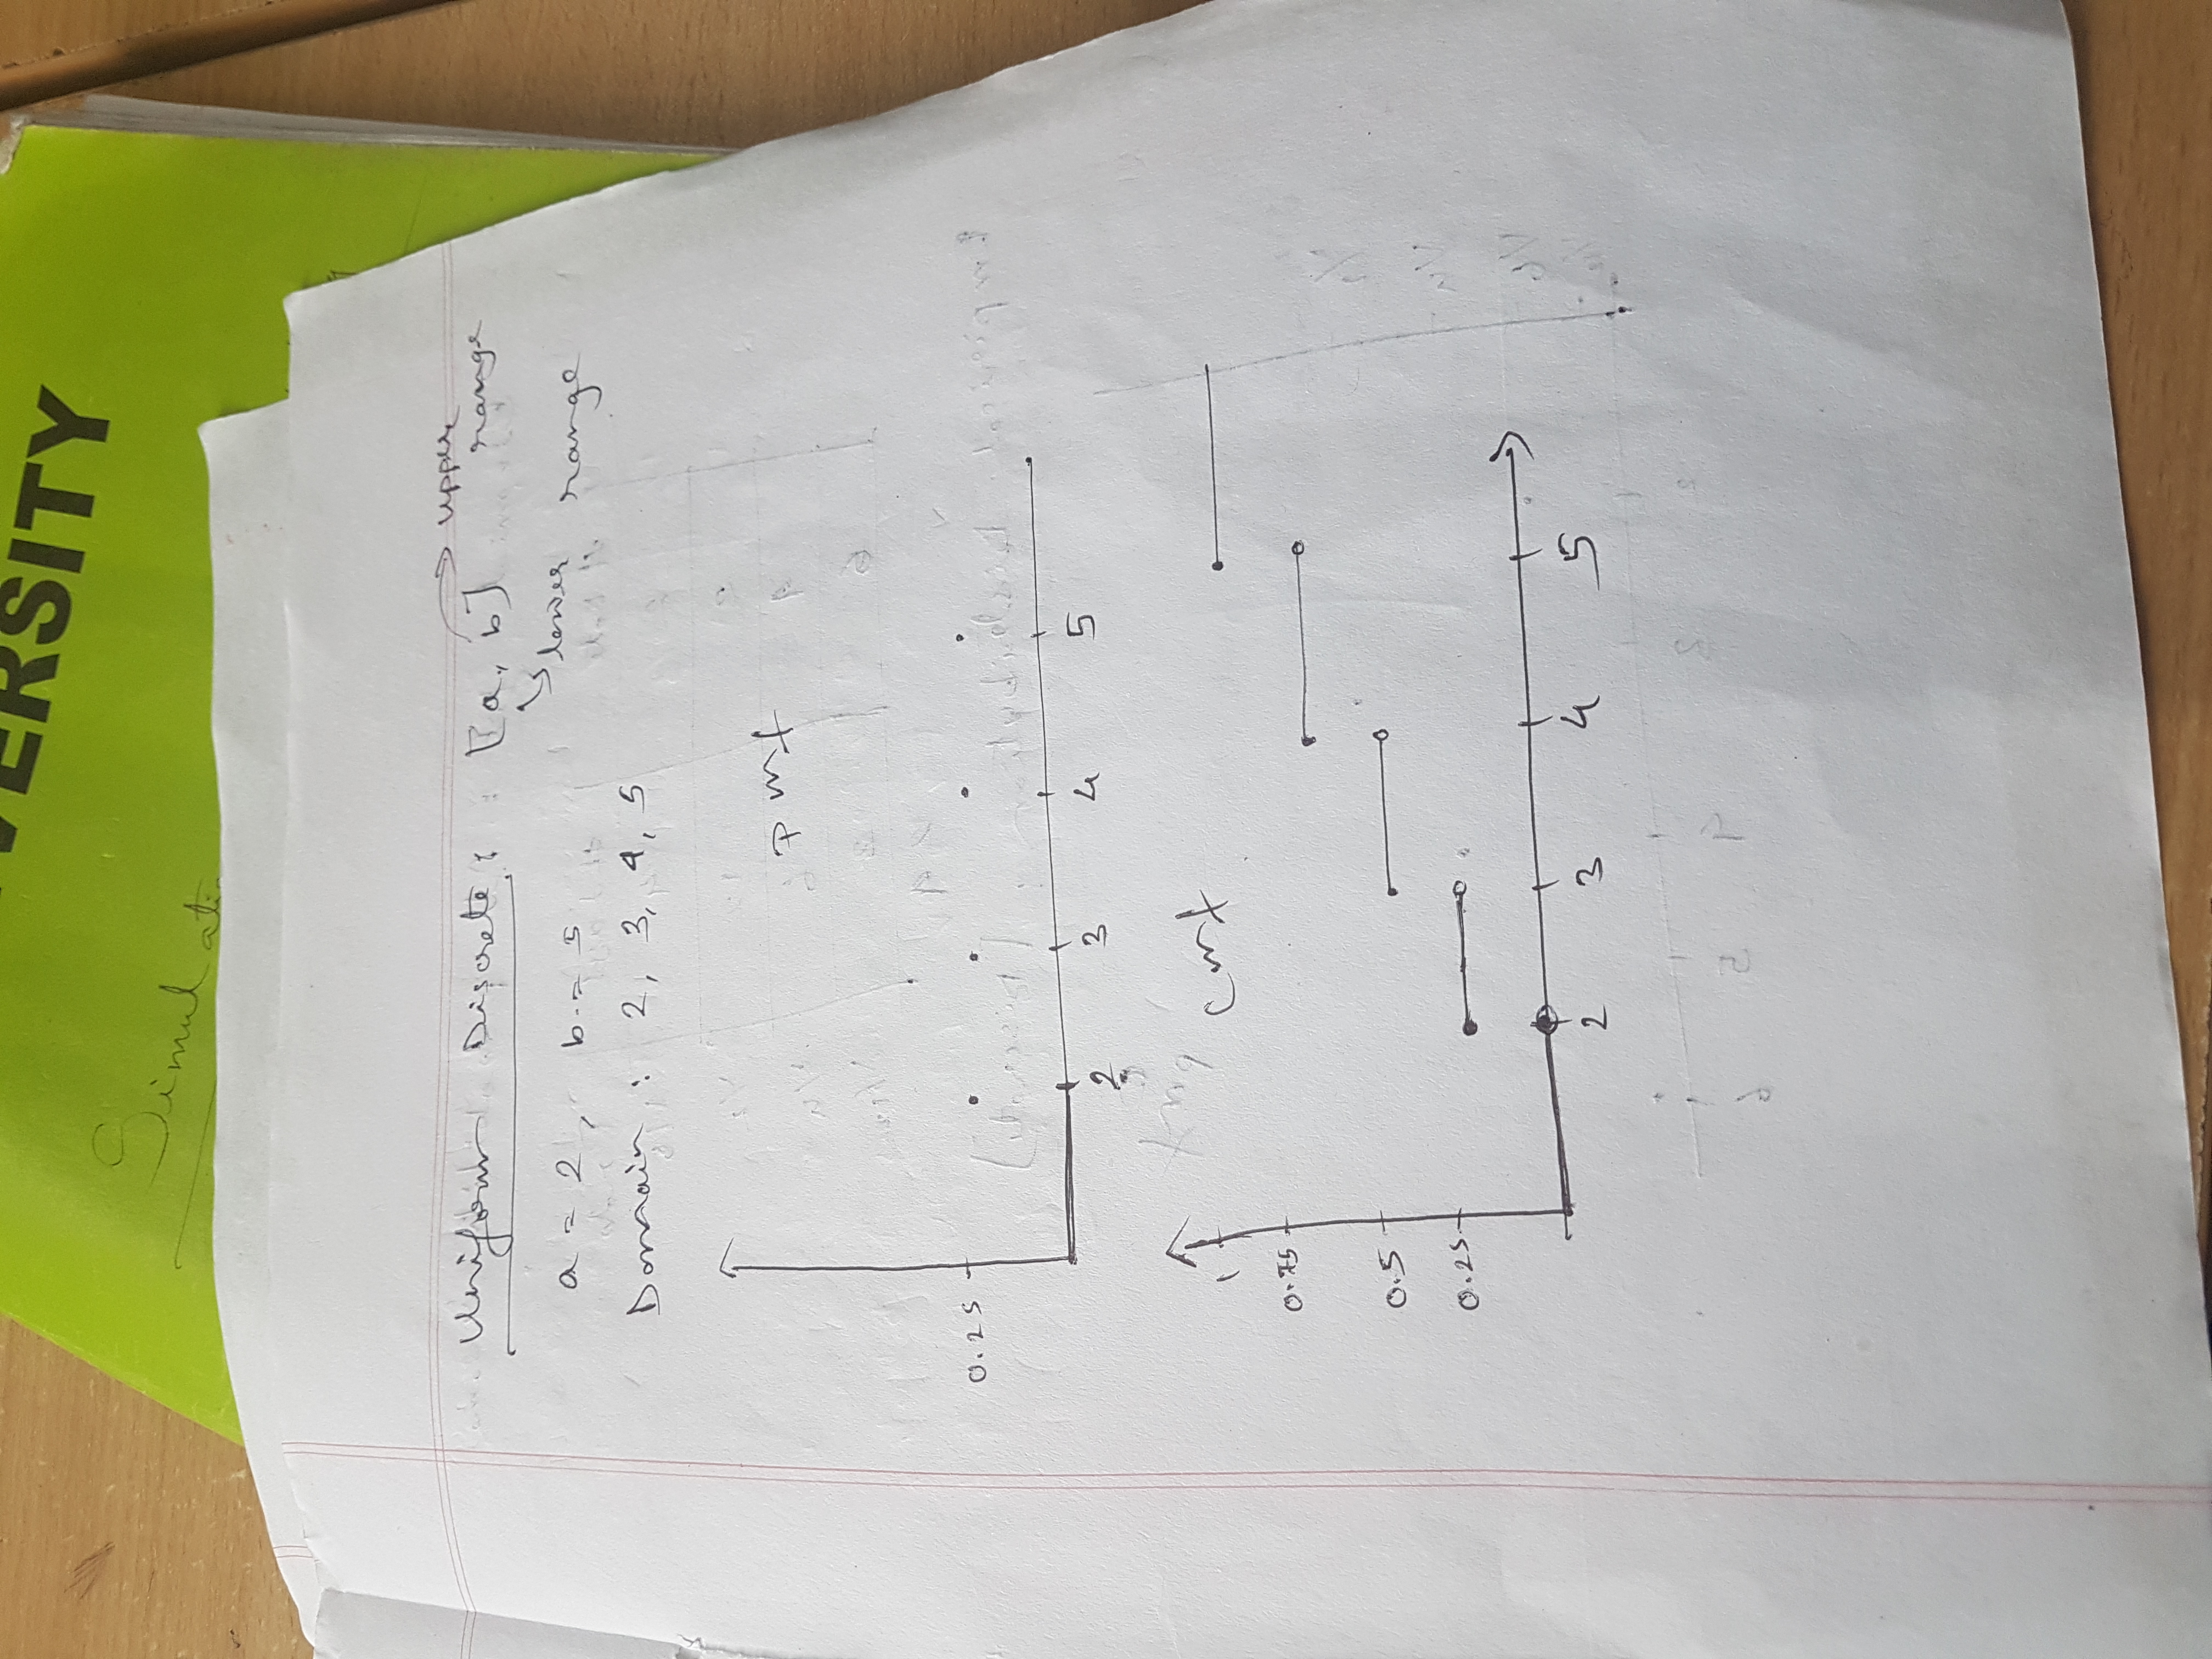 VERSITY
Simulati
Uniform Discrete : [a, b] → upper range
↘ lower range
a = 2, b = 5
Domain : 2, 3, 4, 5
pmf
0.25
2 3 4 5
cmf
1
0.75
0.5
0.25
2 3 4 5